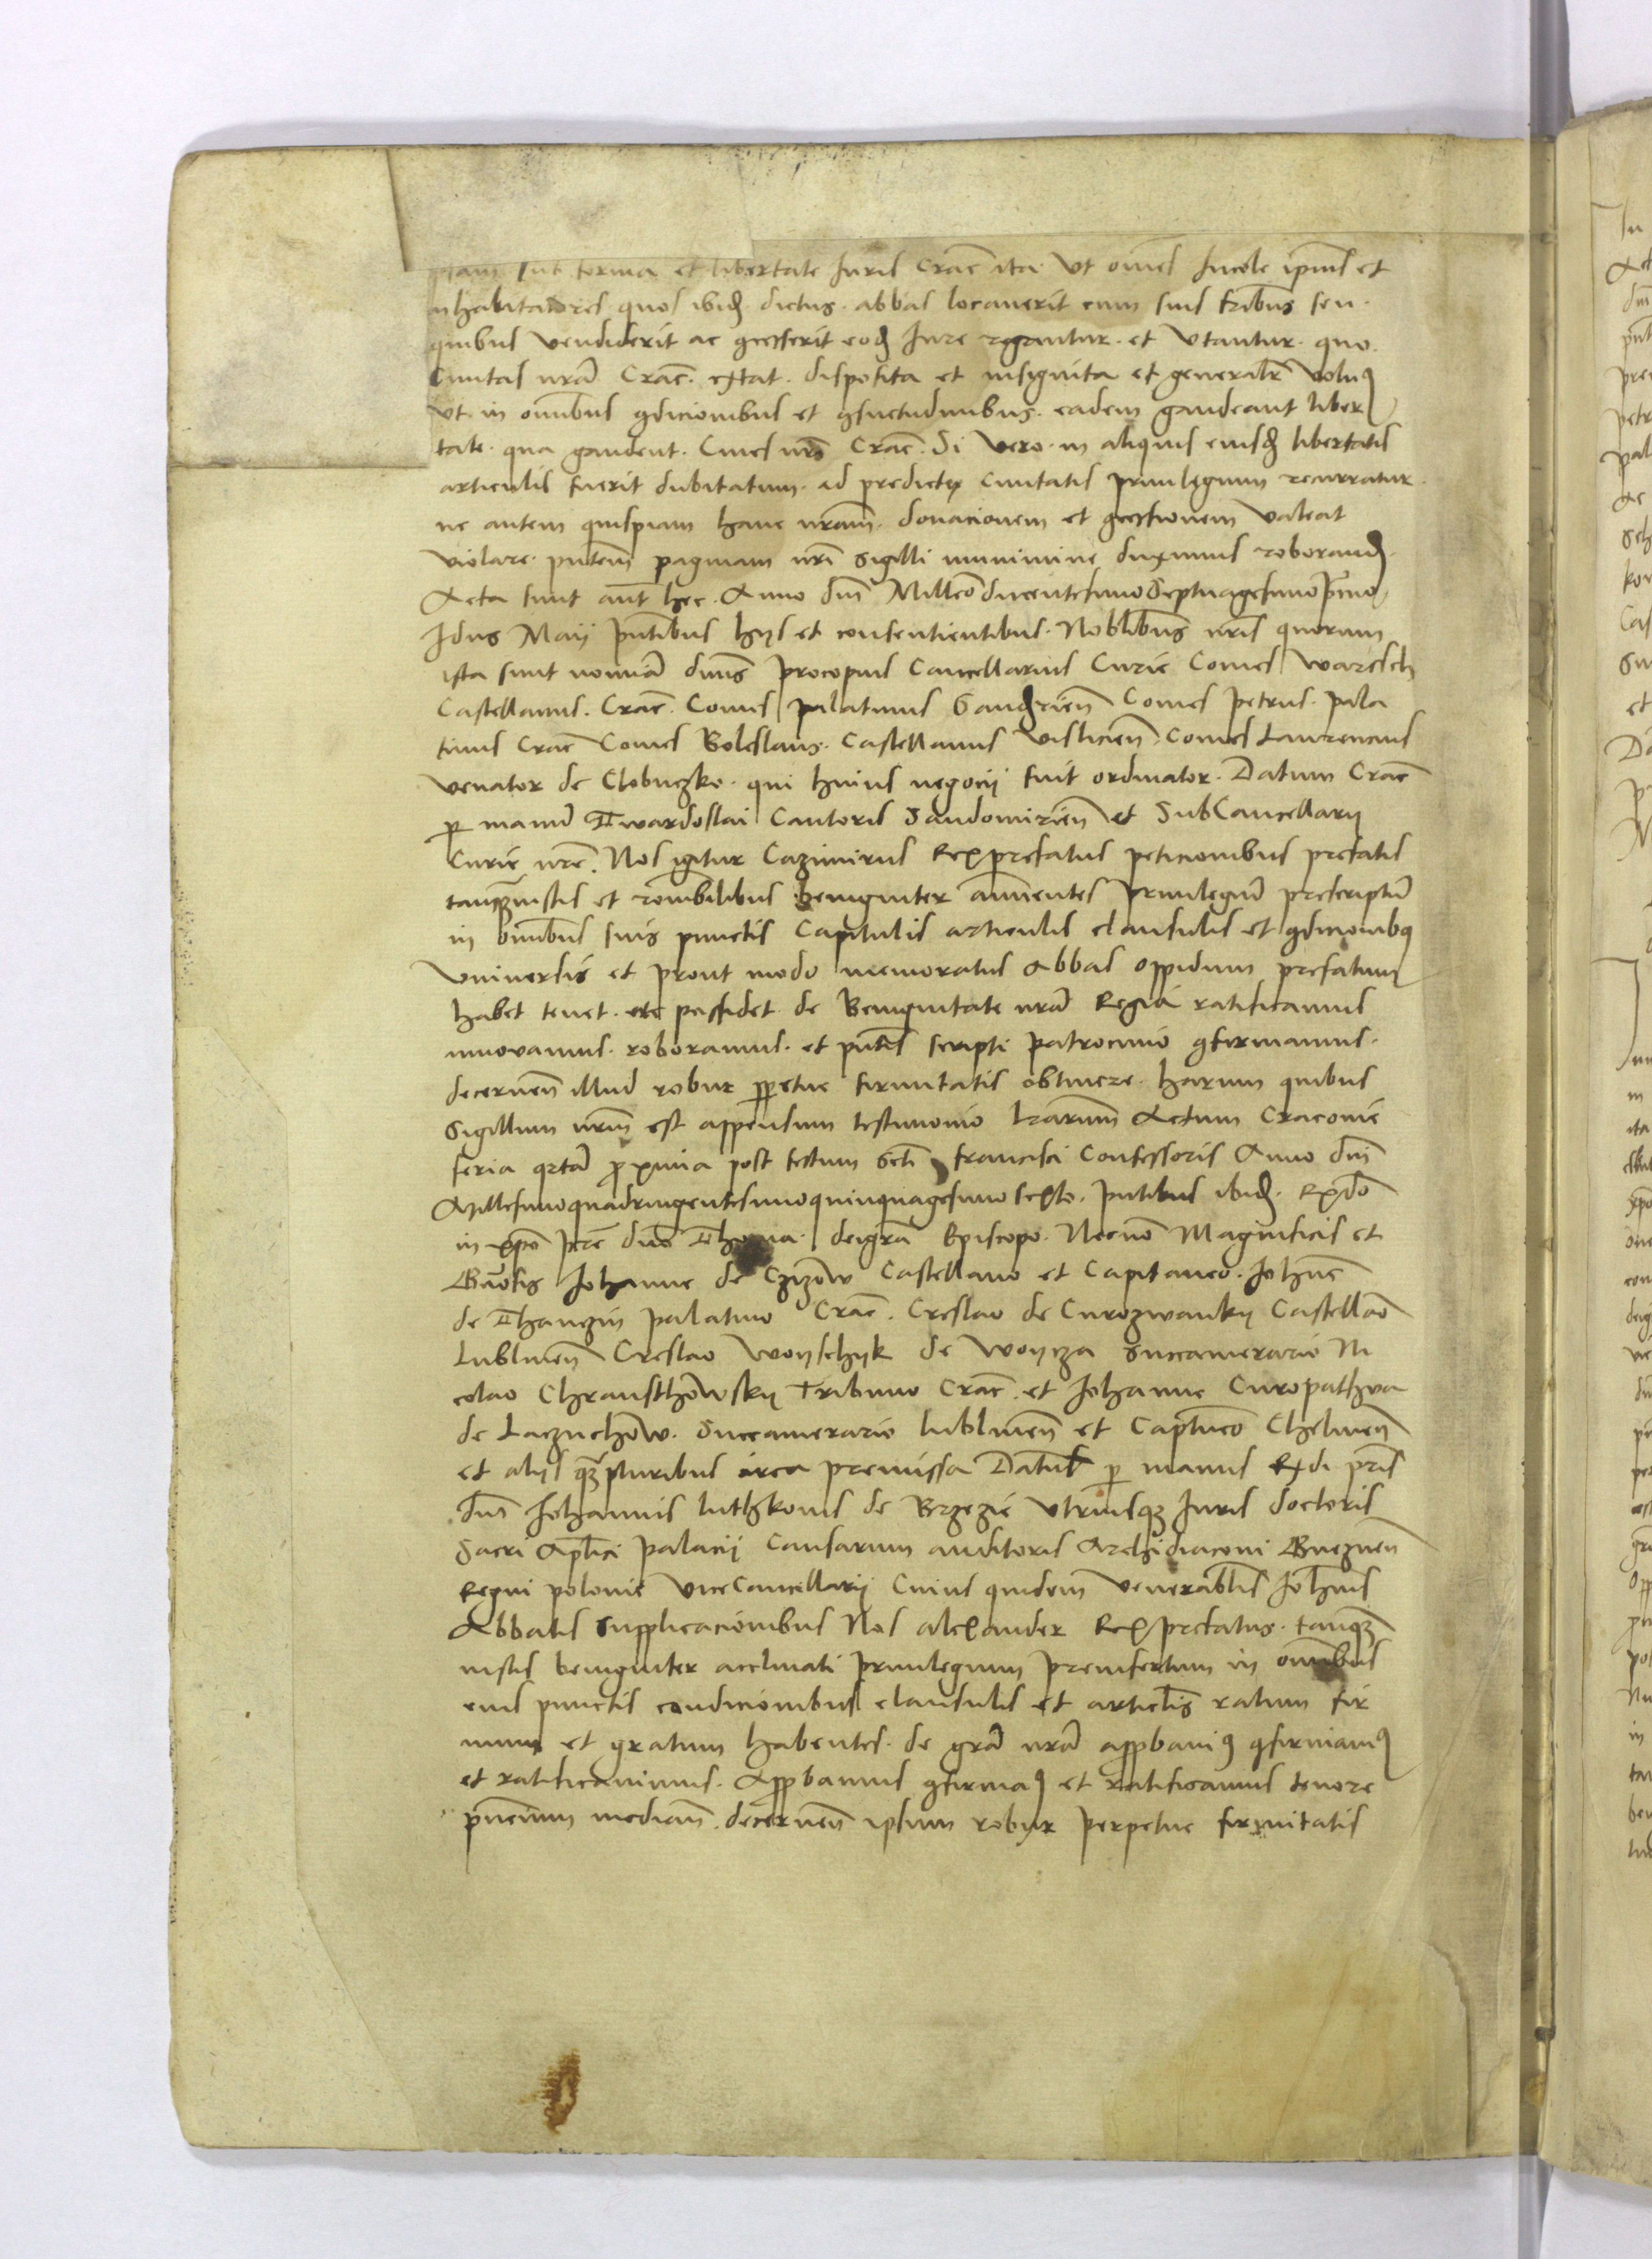 sub forma et libertate Juris Crac̄ ita Ut om̄es Incole ip̄ius et
inhabitatores quos ibidꝫ dictus abbas locaverit cum suis fr̄ibus seu
quibus vendiderit ac ꝯcesserit eodꝫ Jure regantur et Utantur quo
Civitas nr̄a Crac̄. extat disposita et insignita et generalr̄ volumꝰ
Ut in om̄ibus ꝯdicionibus et ꝯsuetudinibus eadem gaudeant liber
tate qua gaudent Cives nr̄i Crac̄. Si vero in aliquis eiusdꝫ libertatis
articulis fuerit dubitatum ad predicte Civitatis privilegium recurratur
ne autem quispiam hanc nr̄am donacionem et ꝯcessionem valeat
violare pn̄tem paginam nr̄i sigilli munimine duximus roborandꝫ
Acta sunt aut̄ hec Anno dn̄i Milleō ducentesimo Septuagesimo Pr̄mo
Idus Maij pn̄tibus hijs et consentientibus Nobilibus nr̄is quorum
ista sunt nomīa dn̄us Procopius Cancellarius Curie Comes Warssch
Castellanus Crac̄. Comes Palatinus Sandꝫrien̄ Comes Petrus pala
tinus Crac̄ Comes Boleslaus Castellanus Vislicien̄ Comes Laurencius
venator de Clobuczko qui huius negocij fuit ordinator Datum Crac̄
ꝑ manū Twardoslai Cantoris Sandomirien̄ et SubCancellarij
Curie nr̄e. Nos igitur Cazimirus Rex prefatus peticionibus prefatis
tanqꝫ iustis et ron̄abilibus benigniter annuentes Privilegiū prescriptū
in om̄ibus suis punctis Capitulis articulis clausulis et ꝯdicionibꝰ
Universis et prout modo memoratus Abbas oppidum prefatum
habet tenet etc possidet de Benignitate nr̄a Regia ratificamus
innovamus roboramus et pn̄tis scripti patrocinio ꝯfirmamus
decernen̄ illud robur ꝑpetue firmitatis obtinere harum quibus
Sigillum nr̄um est appensum testimonio lr̄arum Actum Cracovie
feria qrtā proxima post festum Sct̄i Francisci Confessoris Anno dn̄i
Millesimoquadringentesimoquinquagesimo sexto. pn̄tibus ibidꝫ Rx̄do
in xp̄o pr̄e dn̄o Thoma deigr̄a Episcopo Necnō Magnificis et
Gn̄osis Johanne de Czizow Castellano et Capitaneo John̄e
de Thanczin palatino Crac̄. Creslao de Curozwankij Castellan̄o
Lublinen̄ Creslao Woijschijk de Woijcza Succamerario Ni
colao Chransthowskij Tribuno Crac̄. et Johanne Curopathwa
de Laczuchow Succamerario lublinen̄ et Capitn̄eo Chelmen̄
et alijs qꝫpluribus circa premissa Datū ꝑ manus Rx̄di pr̄is
dn̄i Johannis luthkonis de Brzezie Utriusqꝫ Juris doctoris
Sacri Apl̄ici Palacij Causarum auditoris Archidiaconi Gneznen̄
Regni polonie ViceCancellarij Cuius quidem Venerabl̄is Joh̄nis
Abbatis supplicacionibus Nos alexander Rex prefatus tanqꝫ
iustis benigniter acclinati Privilegium preinsertum in om̄ibus
eius punctis condicionibus clausulis et articl̄is ratum fir
mum et gratum habentes de gr̄a nr̄a approbavimꝰ ꝯfirmavimꝰ
et ratificavimus Approbamus ꝯfirmamꝰ et ratificamus tenore
pn̄cium median̄ decernen̄ ipsum robur perpetue firmitatis